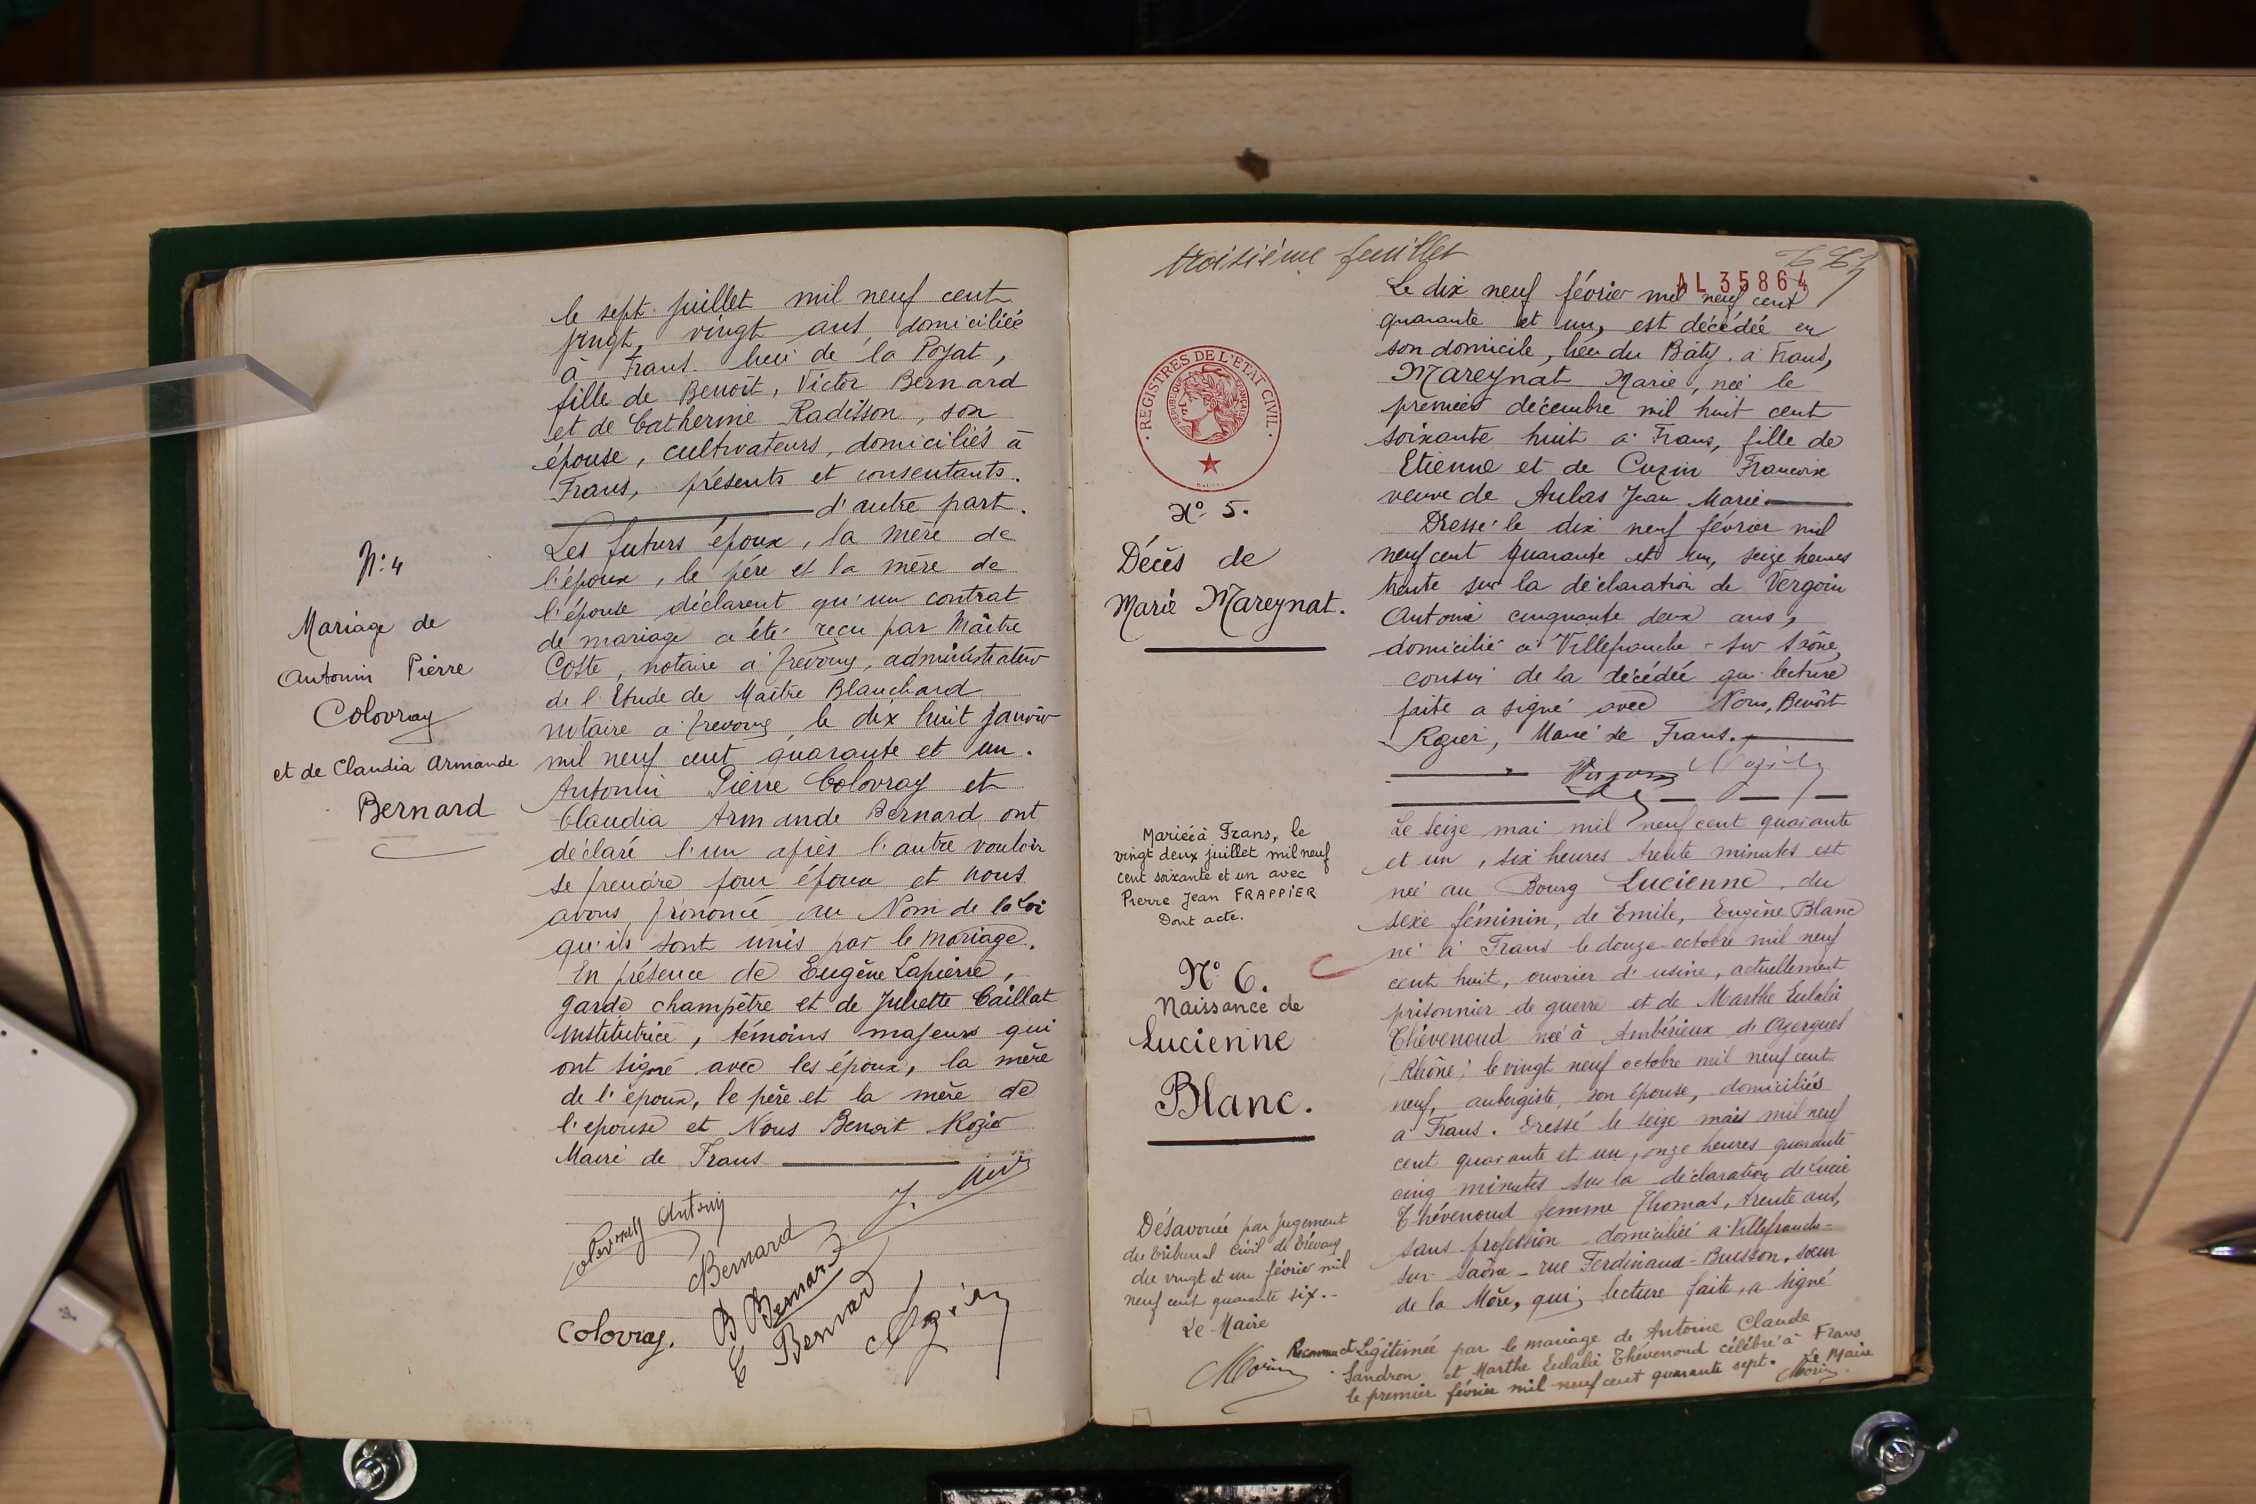 le sept juillet mil neuf cent
vingt, vingt ans, domiciliée
à Frans lieu de la Poyat,
fille de Benoit, Victor Bernard
et de Catherine Radisson, son
épouse, cultivateurs, domiciliés à
Frans, présents et consentants.
d'autre part.
Les futurs époux, la mère de
l'époux, le père et la mère de
l'épouse déclarent qu'un contrat
de mariage a été reçu par Maître
Coste, notaire à Trévoux, administrateur
de l'Etude de Maître Blanchard
notaire à Trévoux le dix huit janvier
mil neuf cent quarante et un.
Antonin Pierre Colovray et
Claudia Armande Bernard ont
déclaré l'un après l'autre vouloir
se prendre pour époux et nous
avons prononcé au Nom de la Loi
qu'ils sont unis par le mariage.
En présence de Eugène Lapierre,
garde champêtre et de Juliette Caillat
institutrice, témoins majeurs qui
ont signé avec les époux, la mère
de l'époux, le père et la mère de
l'épouse et Nous Benoit Rozier
Maire de Frans
N: 4
Mariage de
Antonin Pierre
Colovray
et de Claudia Armande
Bernard
Colovray Antonin
Bernard
B Bernard
C Bernard
Colovray.
troisième feuillet
AL 35864
REGISTRES DE L'ETAT CIVIL
REPUBLIQUE FRANÇAISE
N° 5.
Décès de
Marie Mareynat.
Le dix neuf février mil neuf cent
quarante et un, est décédée en
son domicile, lieu du Bâty à Frans,
Mareynat Marie, née le
premier décembre mil huit cent
soixante huit à Frans, fille de
Etienne et de Cuzin Francoise
veuve de Aulas Jean Marie
Dressé le dix neuf février mil
neuf cent quarante et un, seize heures
trente sur la déclaration de Vergoin
Antoine cinquante deux ans,
domicilié à Villefranche-sur Saône,
cousin de la décédée qui lecture
faite a signé avec Nous, Benoît
Rozier, Maire de Frans.
Mariée à Frans, le
vingt deux juillet mil neuf
cent soixante et un avec
Pierre Jean FRAPPIER
Dont acte.
N° 6.
Naissance de
Lucienne
Blanc.
Le seize mai mil neuf cent quarante
et un, six heures trente minutes est
née au Bourg Lucienne, du
sexe féminin, de Emile, Eugène Blanc
né à Frans le douze octobre mil neuf
cent huit, ouvrier d'usine, actuellement
prisonnier de guerre et de Marthe Eulalie
Thévenoud née à Ambérieux d'Azergues
(Rhône) le vingt neuf octobre mil neuf cent
neuf, aubergiste, son épouse, domiciliés
à Frans. Dressé le seize mai mil neuf
cent quarante et un, onze heures quarante
cinq minutes sur la déclaration de Lucie
Thévenoud femme Thomas, trente ans,
sans profession domiciliée à Villefranche-
sur Saône - rue Ferdinand-Buisson, sœur
de la Mère, qui, lecture faite, a signé
Désavouée par jugement
du Tribunal Civil de Trévoux
du vingt et un février mil
neuf cent quarante six.-
Le Maire
Morin
Reconnue et Légitimée par le mariage de Antoine Claude
Sandron et Marthe Eulalie Thévenoud célébré à Frans
le premier février mil neuf cent quarante sept. Le Maire
Morin